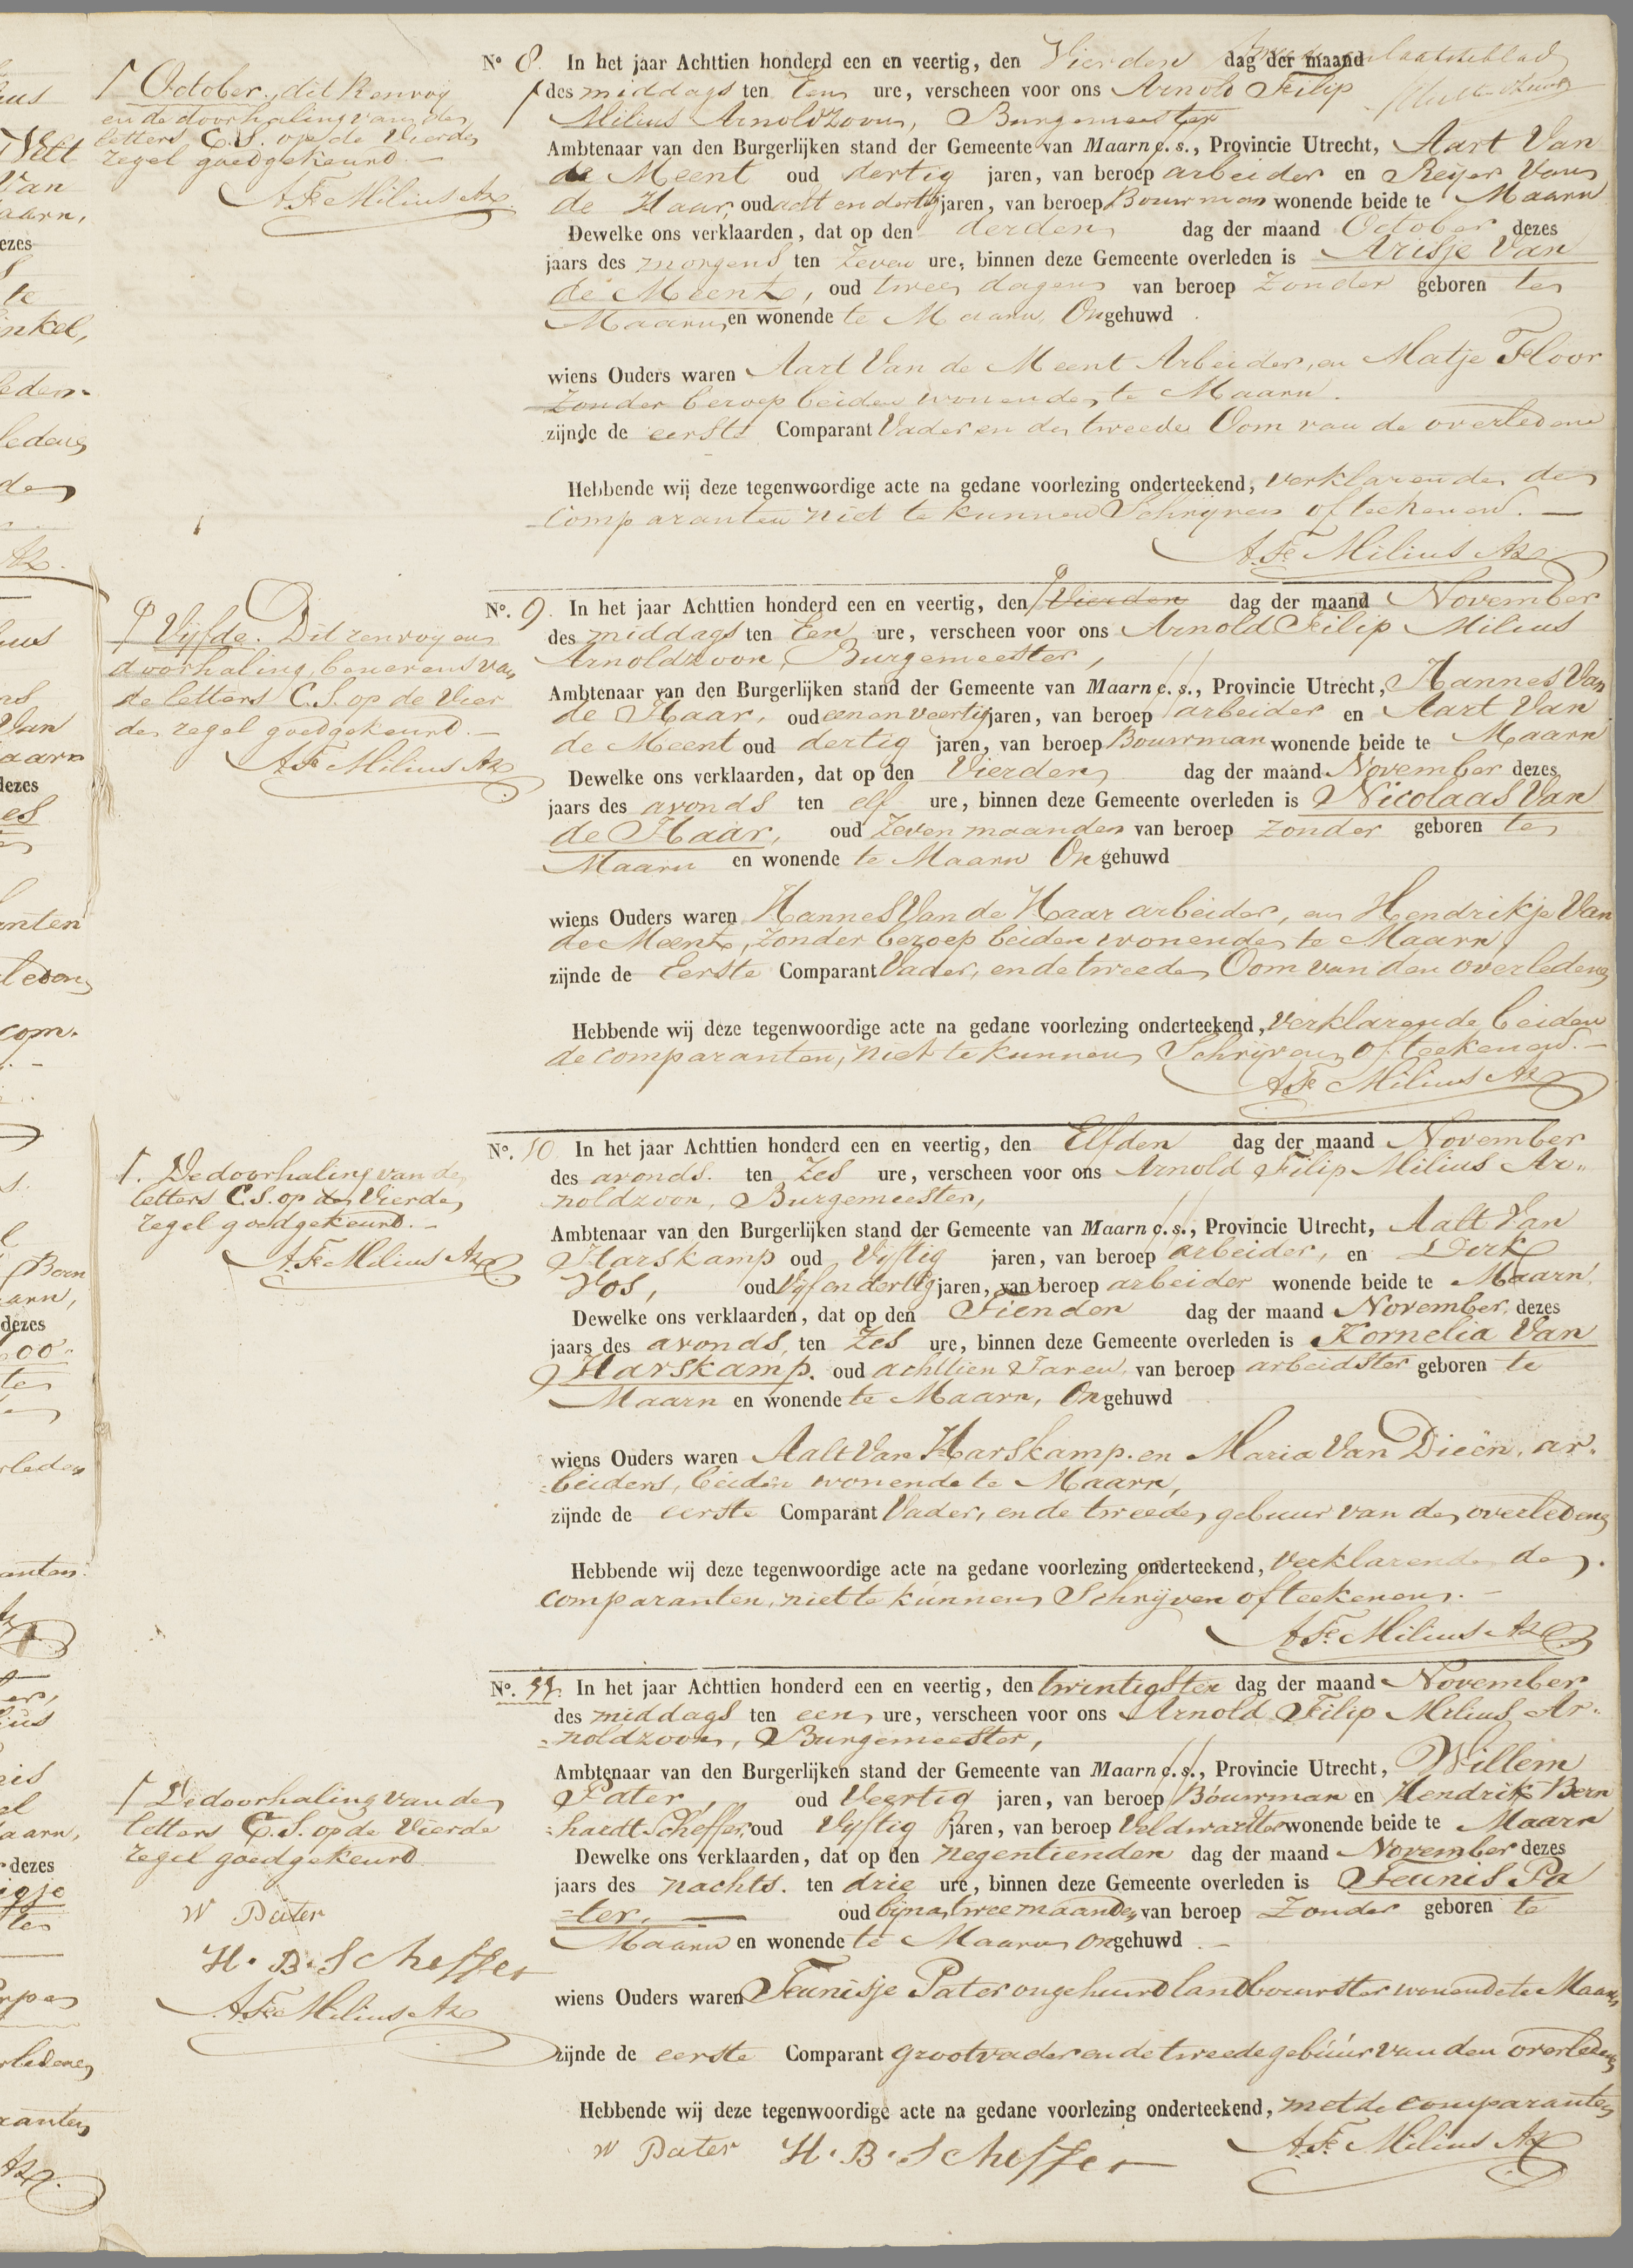 ⌈ October, dit Renvoy
en de doorhaling van de
letters C.S. op de Vierde
regel goedgekeurd. —
A.F. Milius Az
No 8. In het jaar Achttien honderd een en veertig, den Vierden dag der maand
⌈ des middags ten Een ure, verscheen voor ons Arnold Filip
Milius Arnoldzoon, Burgemeester
Ambtenaar van den Burgerlijken stand der Gemeente van Maarn c. s., Provincie Utrecht, Aart Van
de Meent oud dertig jaren, van beroep arbeider en Reijer Van
de Haar, oud acht en dertig jaren, van beroep Bouwman wonende beide te Maarn
Dewelke ons verklaarden, dat op den derden dag der maand October dezes
jaars des morgens ten Zeven ure, binnen deze Gemeente overleden is Arisje Van
de Meent, oud twee dagen van beroep Zonder geboren te
Maarn, en wonende te Maarn, Ongehuwd
wiens Ouders waren Aart Van de Meent Arbeider, en Matje Floor
Zonder beroep beiden wonende te Maarn.
zijnde de eerste Comparant Vader en de tweede Oom van de overledene
Hebbende wij deze tegenwoordige acte na gedane voorlezing onderteekend, verklarende de
Comparanten niet te kunnen Schrijven of teekenen. —
A.F. Milius Az
⌈ Vijfde. Dit renvoy en
doorhaling, benevens van
de letters C.S. op de Vier
de regel goedgekeurd. —
A.F. Milius Az
No. 9. In het jaar Achttien honderd een en veertig, den ⌈ Vierden dag der maand November
des middags ten Een ure, verscheen voor ons Arnold Filip Milius
Arnoldzoon, Burgemeester,
Ambtenaar van den Burgerlijken stand der Gemeente van Maarn c. s., Provincie Utrecht, Hannes Van
de Haar, oud een en veertig jaren, van beroep arbeider en Aart Van
de Meent oud dertig jaren, van beroep Bouwman wonende beide te Maarn
Dewelke ons verklaarden, dat op den Vierden dag der maand November dezes
jaars des avonds ten elf ure, binnen deze Gemeente overleden is Nicolaas Van
de Haar, oud Zeven maanden van beroep Zonder geboren te
Maarn en wonende te Maarn Ongehuwd
wiens Ouders waren Hannes Van de Haar arbeider, en Hendrikje Van
de Meent, Zonder beroep beiden wonende te Maarn,
zijnde de Eerste Comparant Vader, en de tweede Oom van den overledene
Hebbende wij deze tegenwoordige acte na gedane voorlezing onderteekend, Verklarende beiden
de comparanten, niet te kunnen Schrijven of teekenen. —
A.F. Milius Az
⌈. De doorhaling van de
letters C.S. op de Vierde
regel goedgekeurd. —
A.F. Milius Az
No. 10 In het jaar Achttien honderd een en veertig, den Elfden dag der maand November
des avonds. ten Zes ure, verscheen voor ons Arnold Filip Milius Ar„
noldzoon, Burgemeester,
Ambtenaar van den Burgerlijken stand der Gemeente van Maarn c. s., Provincie Utrecht, Aalt Van
Harskamp oud Vijftig jaren, van beroep arbeider, en Dirk
Vos, oud Vijf en dertig jaren, van beroep arbeider wonende beide te Maarn,
Dewelke ons verklaarden, dat op den Tienden dag der maand November, dezes
jaars des avonds, ten Zes ure, binnen deze Gemeente overleden is Kornelia Van
Harskamp. oud achttien Jaren, van beroep arbeidster geboren te
Maarn en wonende te Maarn, Ongehuwd
wiens Ouders waren Aalt Van Harskamp. en Maria Van Dieën, ar„
beiders, beiden wonende te Maarn,
zijnde de eerste Comparant Vader, en de tweede, gebuur van de, overledene
Hebbende wij deze tegenwoordige acte na gedane voorlezing onderteekend, Verklarende de
comparanten, niet te kunnen Schrijven of teekenen. —
A.F. Milius Az
⌈ De doorhaling van de
letters C.S. op de Vierde
regel goedgekeurd
W Pater
H. B. Scheffer
A.F. Milius Az
No. 11. In het jaar Achttien honderd een en veertig, den twintigsten dag der maand November
des middags ten een ure, verscheen voor ons Arnold Filip Milius Ar„
noldzoon, Burgemeester,
Ambtenaar van den Burgerlijken stand der Gemeente van Maarn c. s., Provincie Utrecht, Willem
Pater, oud Veertig jaren, van beroep Bouwman en Hendrik Bern
hardt Scheffer, oud Vijftig jaren, van beroep Veldwachter wonende beide te Maarn
Dewelke ons verklaarden, dat op den negentienden dag der maand November dezes
jaars des nachts. ten drie ure, binnen deze Gemeente overleden is Teunis Pa
ter, — oud bijna twee maanden van beroep Zonder geboren te
Maarn en wonende te Maarn Ongehuwd. —
wiens Ouders waren Teunisje Pater ongehuwd landbouwster wonende te Maarn
zijnde de eerste Comparant grootvader en de tweede gebuur van den overledene
Hebbende wij deze tegenwoordige acte na gedane voorlezing onderteekend, met de comparanten
W Pater H. B. Scheffer A.F. Milius Az